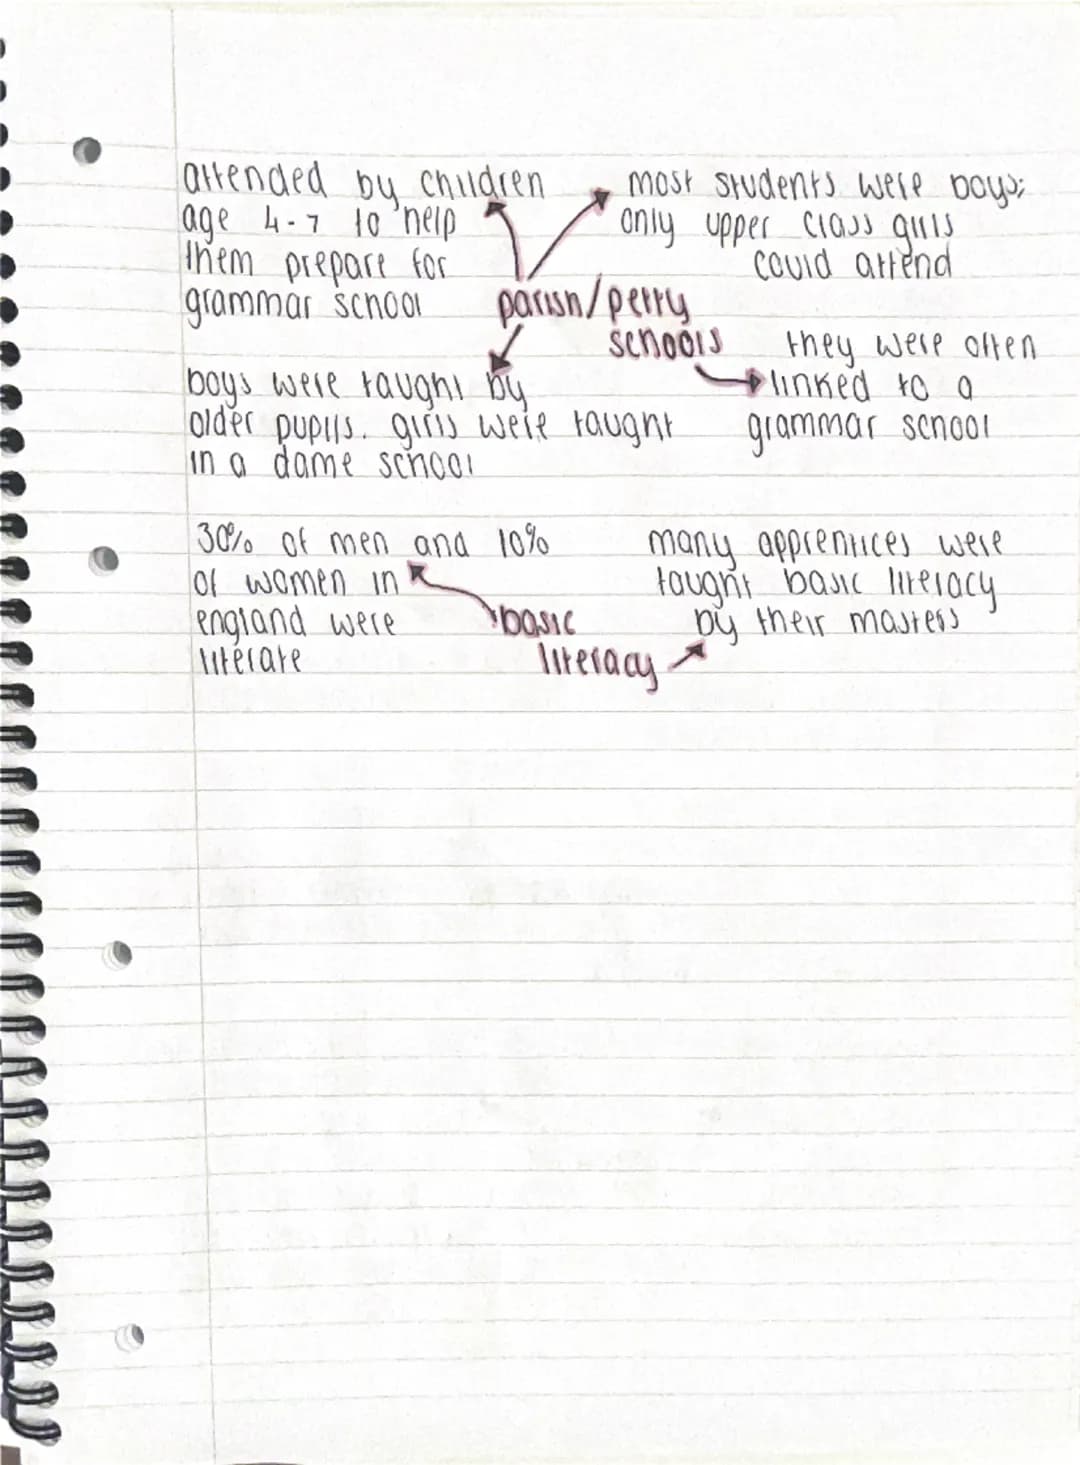 attended by children
age 4-7 to help
them prepare for
grammar school
most students were boys;
only upper class girls
could attend
parish/petty
schools
they were often
linked to a
grammar school
boys were taught by
older pupils. girls were taught
in a dame school
30% of men and 10%
of women in
england were
literate
basic
literacy
many apprentices were
taught basic literacy
by their masters